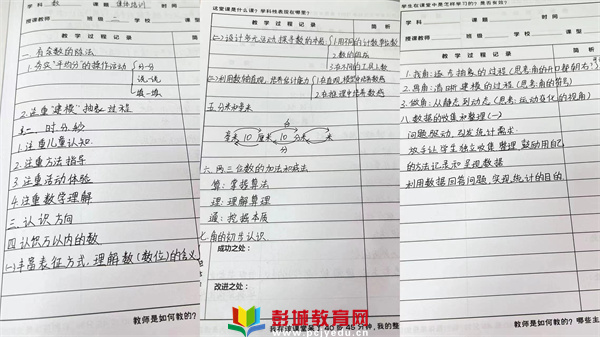 学科 数 课题 集体培训 时间
授课教师 班级 二 学校 课型
教学过程记录 简析
一.有余数的除法
1.夯实"平均分"的操作活动 分一分
说一说
填一填
2.注重"建模"抽象过程
二.时分秒
1.注重儿童认知
2.注重方法指导
3.注重活动体验
4.注重数学理解
三.认识方向
四.认识万以内的数
(一)丰富表征方式,理解数(数位)的含义
教师是如何教的?
试室课是什么课?学科性表现在哪里?
教学过程记录 简析
(二)设计多元活动,探寻数的本质 1.用不同的计数单位数
2.数的组成
3.在不同的工具上数
(三)利用数轴直观,培养估计能力 1.在直观模型中培养数感
2.在推理中培养数感
五.分米和毫米
毫米 10 厘米 10 分米 米
六.两三位数的加法和减法
算:掌握算法
理:理解算理
通:挖掘本质
七.角的初步认识
成功之处:
改进之处:
我在该课堂呆了40或45分钟,我的整
学生在课堂中是怎样学习的?是否有效?
教学过程记录 简析
1.找角:逐步抽象的过程(思考:角的开口都朝右)
2.画角:清晰建模的过程(思考:角的符号)
3.做角:从静态到动态(思考:运动变化的视角)
八.数据的收集和整理(一)
问题驱动,引发统计需求
放手让学生独立收集整理,鼓励用自己
的方法记录和呈现数据
利用数据回答问题,实现统计的目的
教师是如何教的?哪些主
彭城教育网
www.pcjyedu.cn